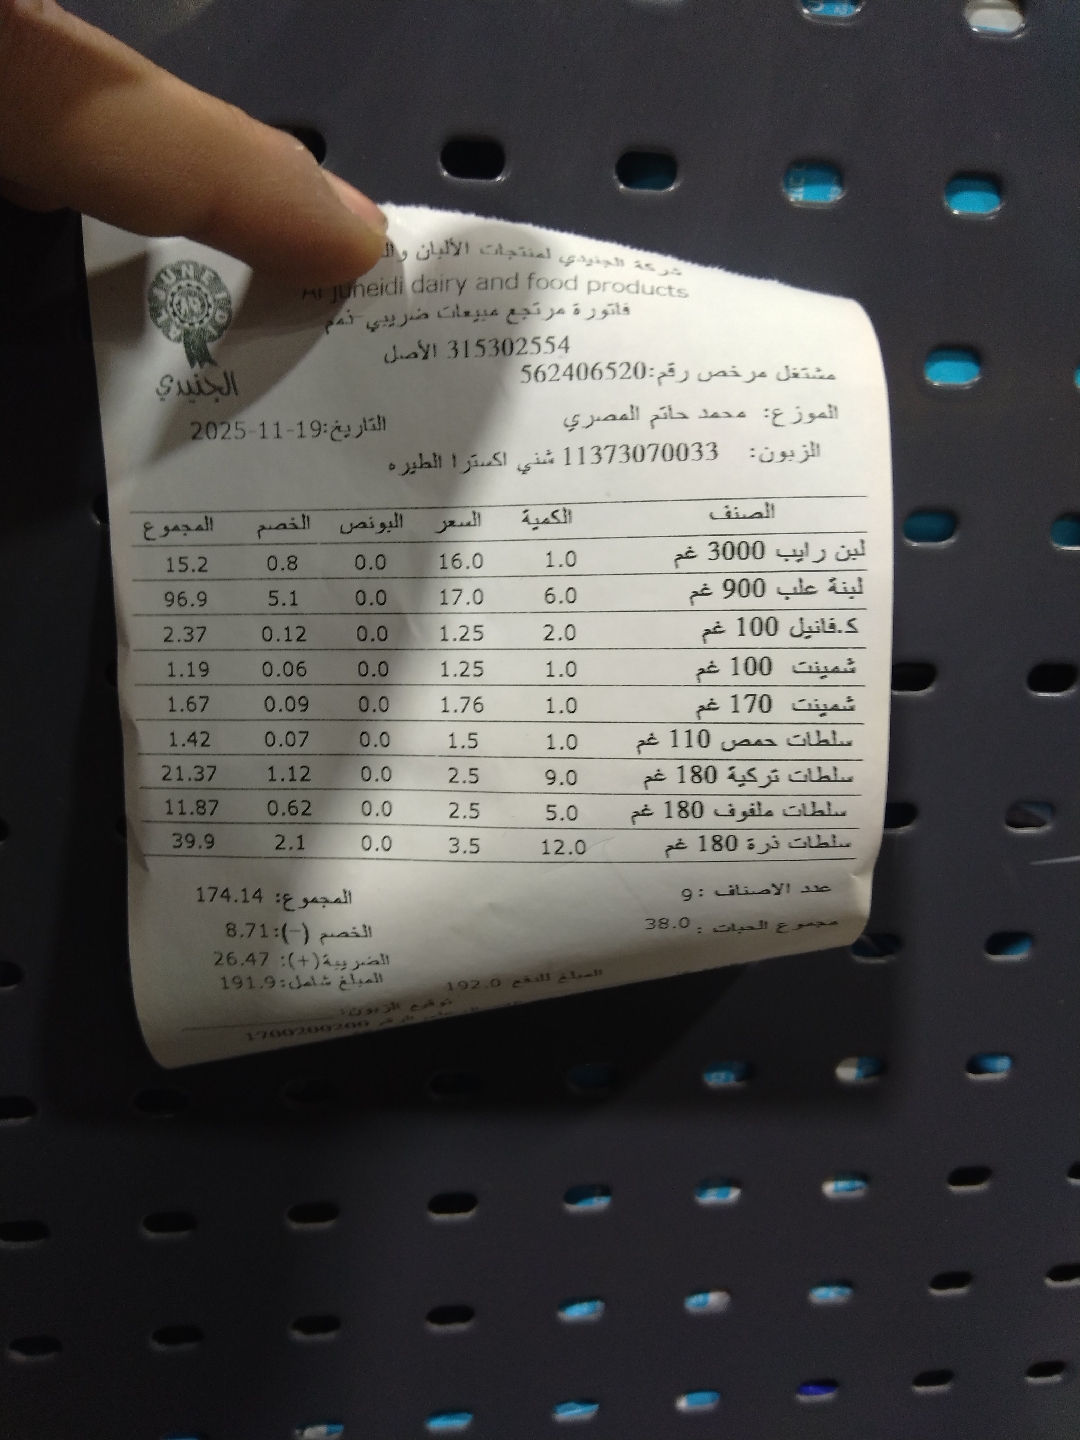 شركة الجنيدي لمنتجات الألبان
Al Juneidi dairy and food products
فاتورة مرتجع مبيعات ضريبي-ذمم
315302554 الأصل
AL JUNEIDI
الجنيدي
مشتغل مرخص رقم:562406520
الموزع: محمد حاتم المصري
التاريخ:2025-11-19
الزبون: 11373070033 شني اكسترا الطيره
الصنف الكمية السعر البونص الخصم المجموع
لبن رايب 3000 غم 1.0 16.0 0.0 0.8 15.2
لبنة علب 900 غم 6.0 17.0 0.0 5.1 96.9
ك.فانيل 100 غم 2.0 1.25 0.0 0.12 2.37
شمينت 100 غم 1.0 1.25 0.0 0.06 1.19
شمينت 170 غم 1.0 1.76 0.0 0.09 1.67
سلطات حمص 110 غم 1.0 1.5 0.0 0.07 1.42
سلطات تركية 180 غم 9.0 2.5 0.0 1.12 21.37
سلطات ملفوف 180 غم 5.0 2.5 0.0 0.62 11.87
سلطات ذرة 180 غم 12.0 3.5 0.0 2.1 39.9
عدد الاصناف :9
المجموع: 174.14
مجموع الحبات : 38.0
الخصم (-):8.71
الضريبة(+): 26.47
المبلغ شامل:191.9
المبلغ للدفع 192.0
توقيع الزبون:
1700200200